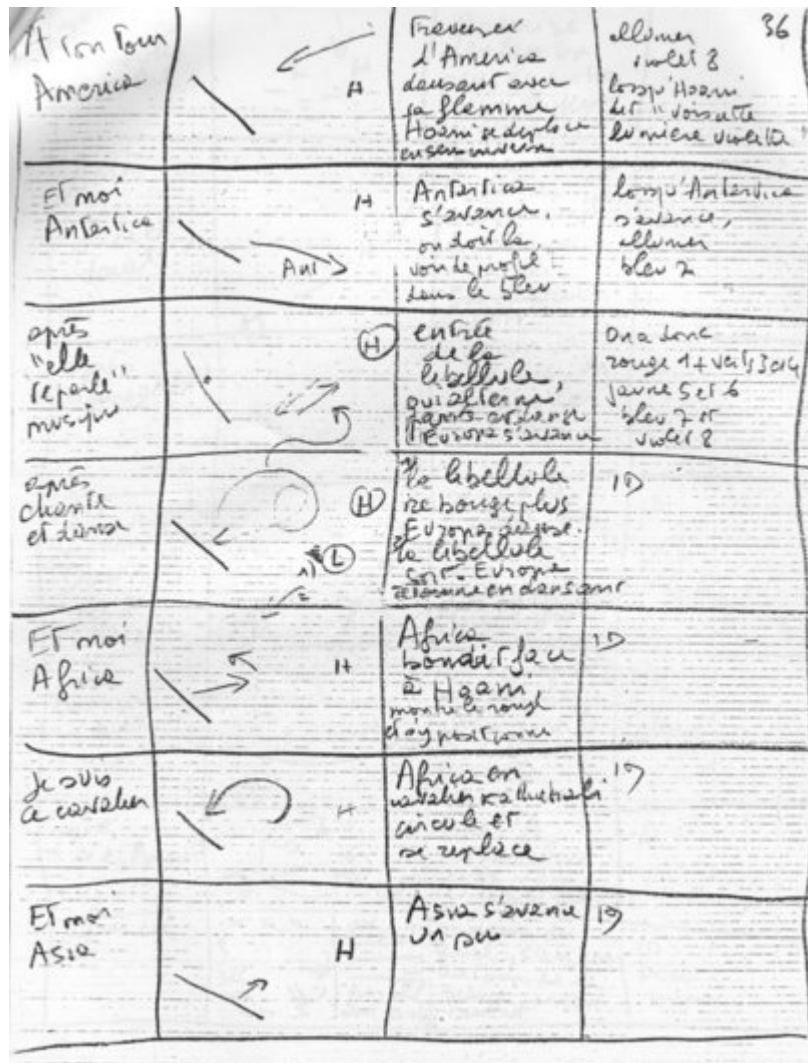 36
A ton tour
America
H
Traversée
d'America
dansant avec
sa flamme
Hoani se déplace
en sens inverse
allumer
violet 8
lorsqu'Hoani
dit "vois cette
lumière violette
Et moi
Antartica
Ant
H
Antartica
s'avance,
on doit la
voir de profil
dans le bleu
lorsqu'Antartica
s'avance,
allumer
bleu 7
après
"elle
reparle"
musique
H
entrée
de la
libellule,
qui alterne
Europa s'avance
On a donc
rouge 1 + vert 3 et 4
jaune 5 et 6
bleu 7 et
violet 8
après
chante
et danse
H
L
1)
2
1) la libellule
ne bouge plus
Europa danse.
2) la libellule
sort. Europe
retourne en dansant
ID
Et moi
Africa
H
Africa
bondit face
à Hoani
montre le rouge
ID
Je suis
ce cavalier
H
Africa en
cavalier
circule et
se replace
ID
Et moi
Asia
H
Asia s'avance
un peu
ID